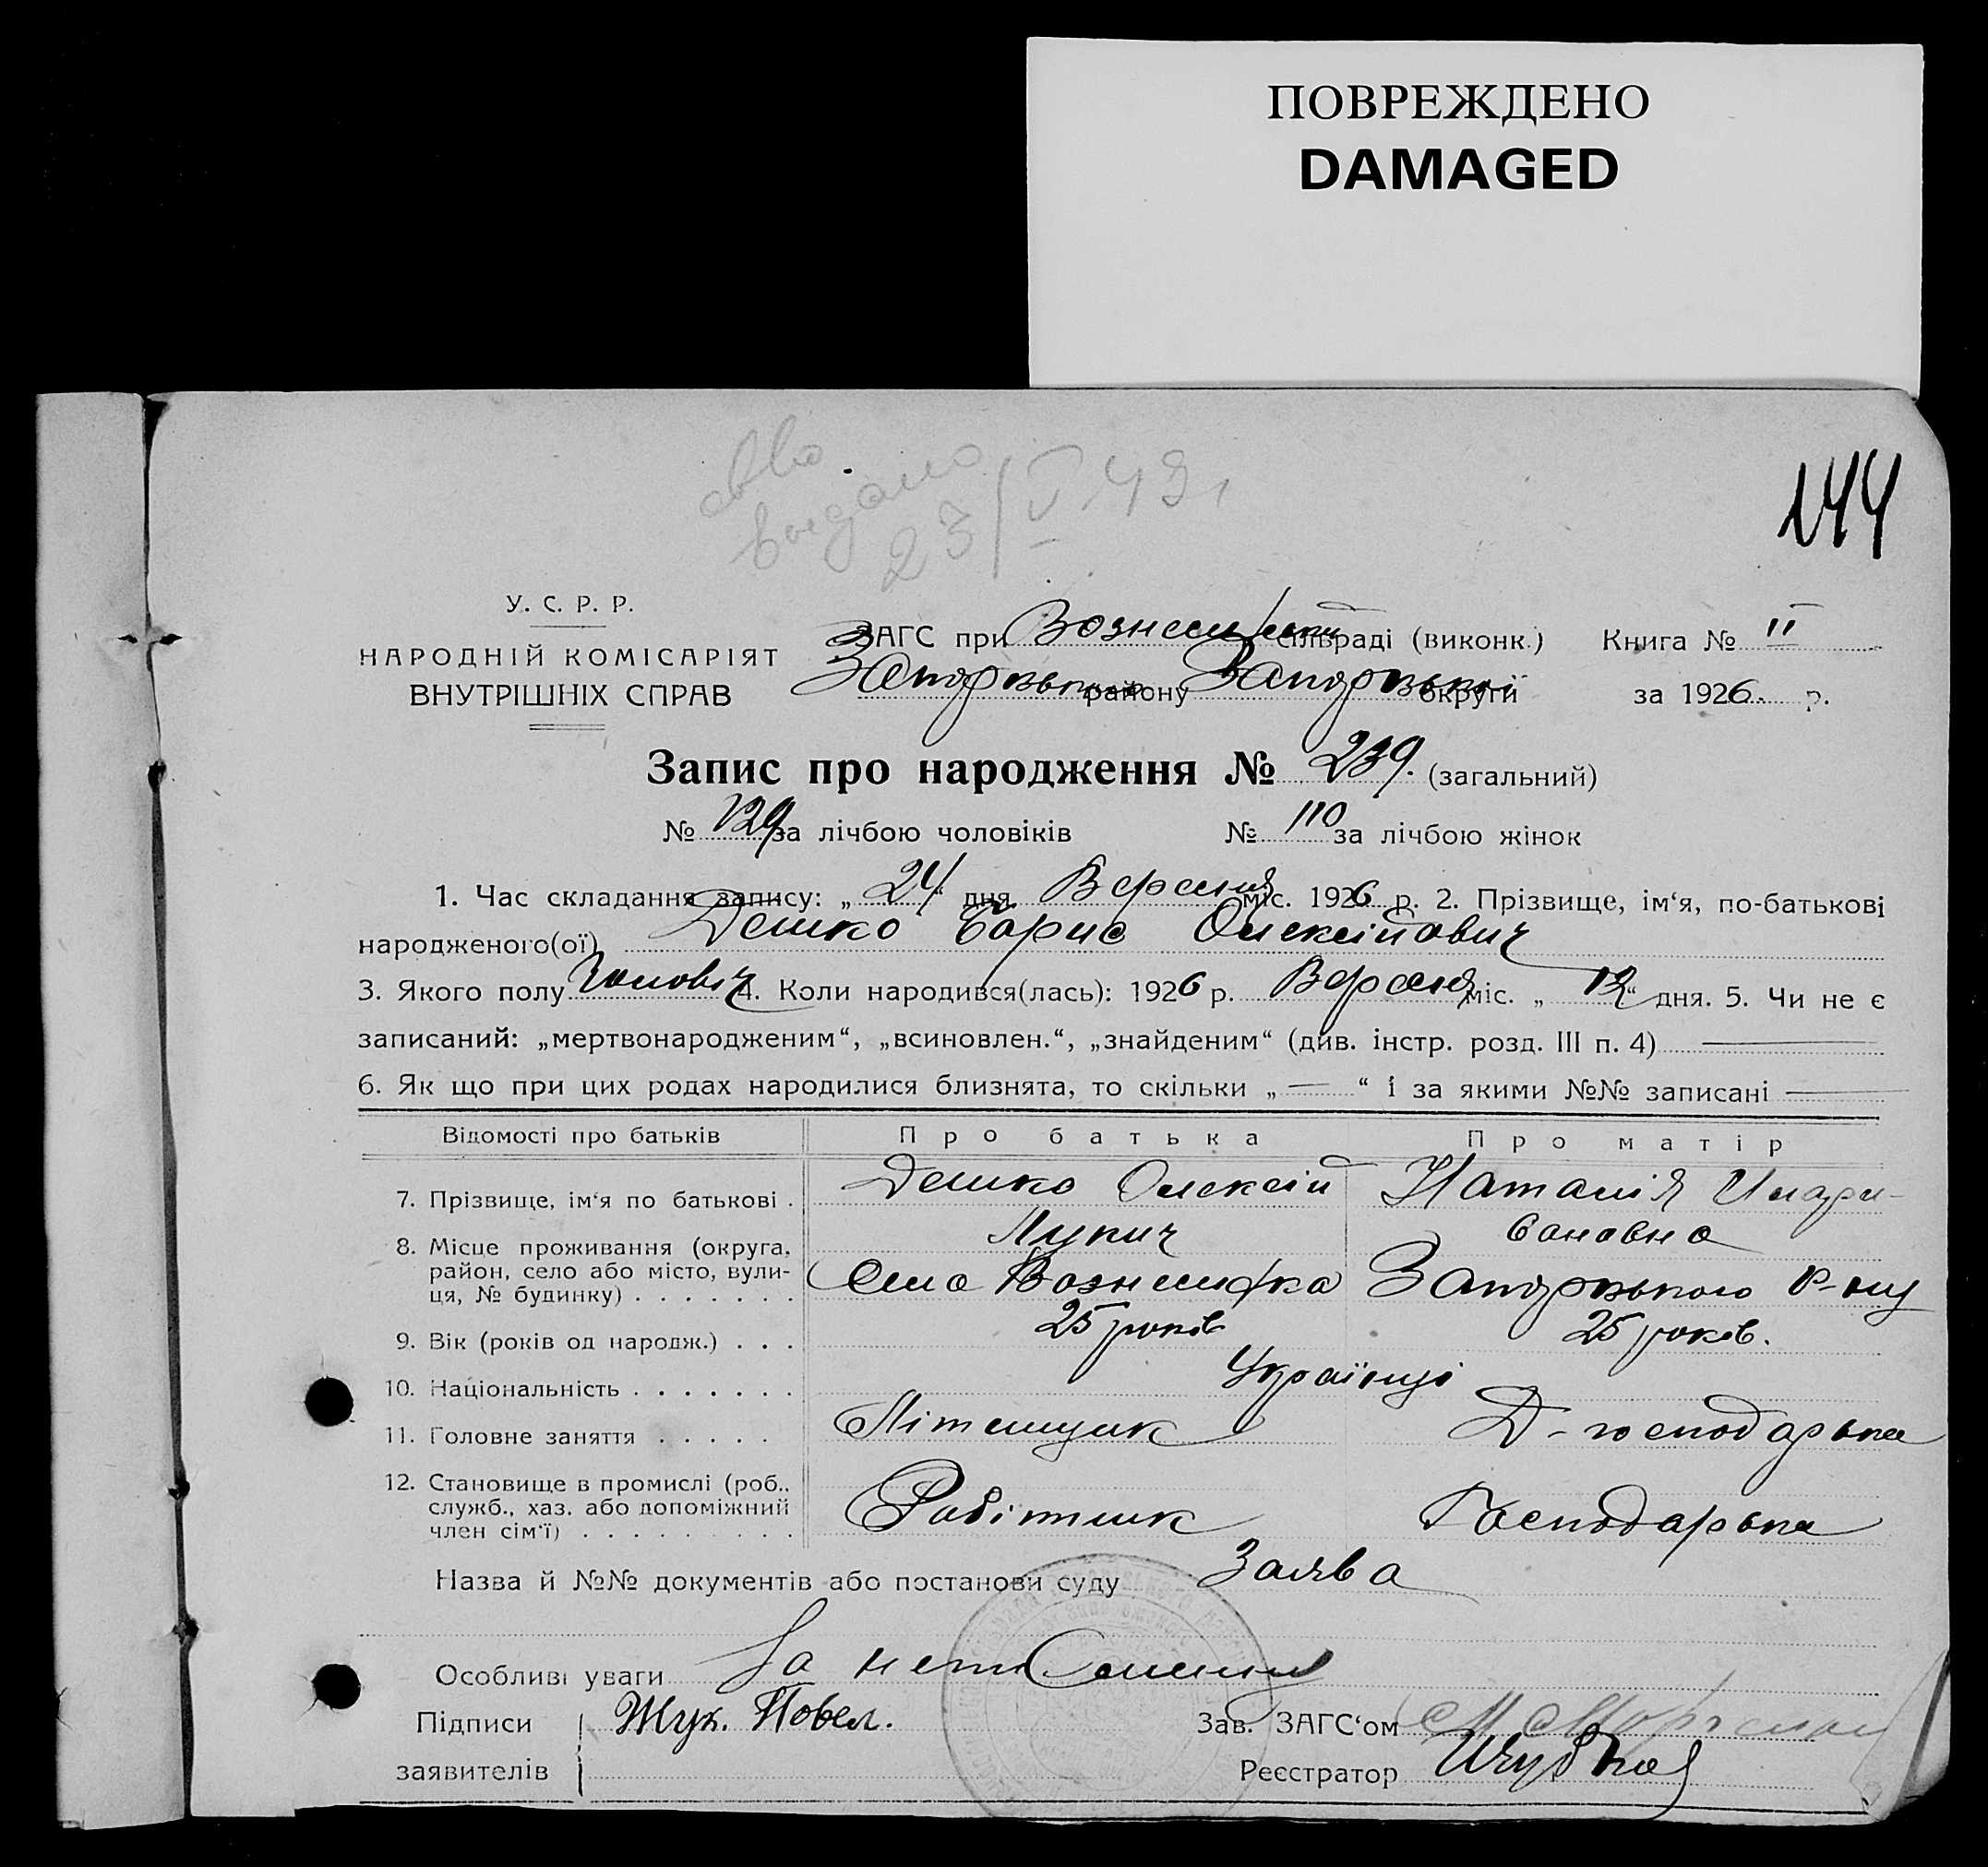 ПОВРЕЖДЕНО
DAMAGED
выдано
23/V 49г
144
У. С. Р. Р.
НАРОДНІЙ КОМІСАРІЯТ
ВНУТРІШНІХ СПРАВ
ЗАГС при Вознесенській сільраді (виконк.) Книга № II
Запорізького району Запорізької округи за 1926 р.
Запис про народження № 239. (загальний)
№ 129 за лічбою чоловіків № 110 за лічбою жінок
1. Час складання запису: „24“ дня Вересня міс. 1926 р. 2. Прізвище, ім‘я, по-батькові
народженого(ої) Дешко Борис Олексійович
3. Якого полу Чоловіч 4. Коли народився(лась): 1926 р. Вересня міс. „12“ дня. 5. Чи не є
записаний: „мертвонародженим“, „всиновлен.“, „знайденим“ (див. інстр. розд. III п. 4) —
6. Як що при цих родах народилися близнята, то скільки „—“ і за якими №№ записані —
Відомості про батьків Про батька Про матір
7. Прізвище, ім‘я по батькові . Дешко Олексій Лукич Наталія Илари-
вановна
8. Місце проживання (округа,
район, село або місто, вули-
ця, № будинку) . . . . . . . Село Вознесенка Запорізького р-ну
9. Вік (років од народж.) . . . 25 років 25 років.
10. Національність . . . . . . . Українці
11. Головне заняття . . . . . Літейщик Д-господарька
12. Становище в промислі (роб.,
служб., хаз. або допоміжний
член сім‘ї) . . . . . . . . . Робітник Господарька
Назва й №№ документів або постанови суду Заява
Особливі уваги За
Підписи Жук. Повел. Зав. ЗАГС‘ом
заявителів Реєстратор